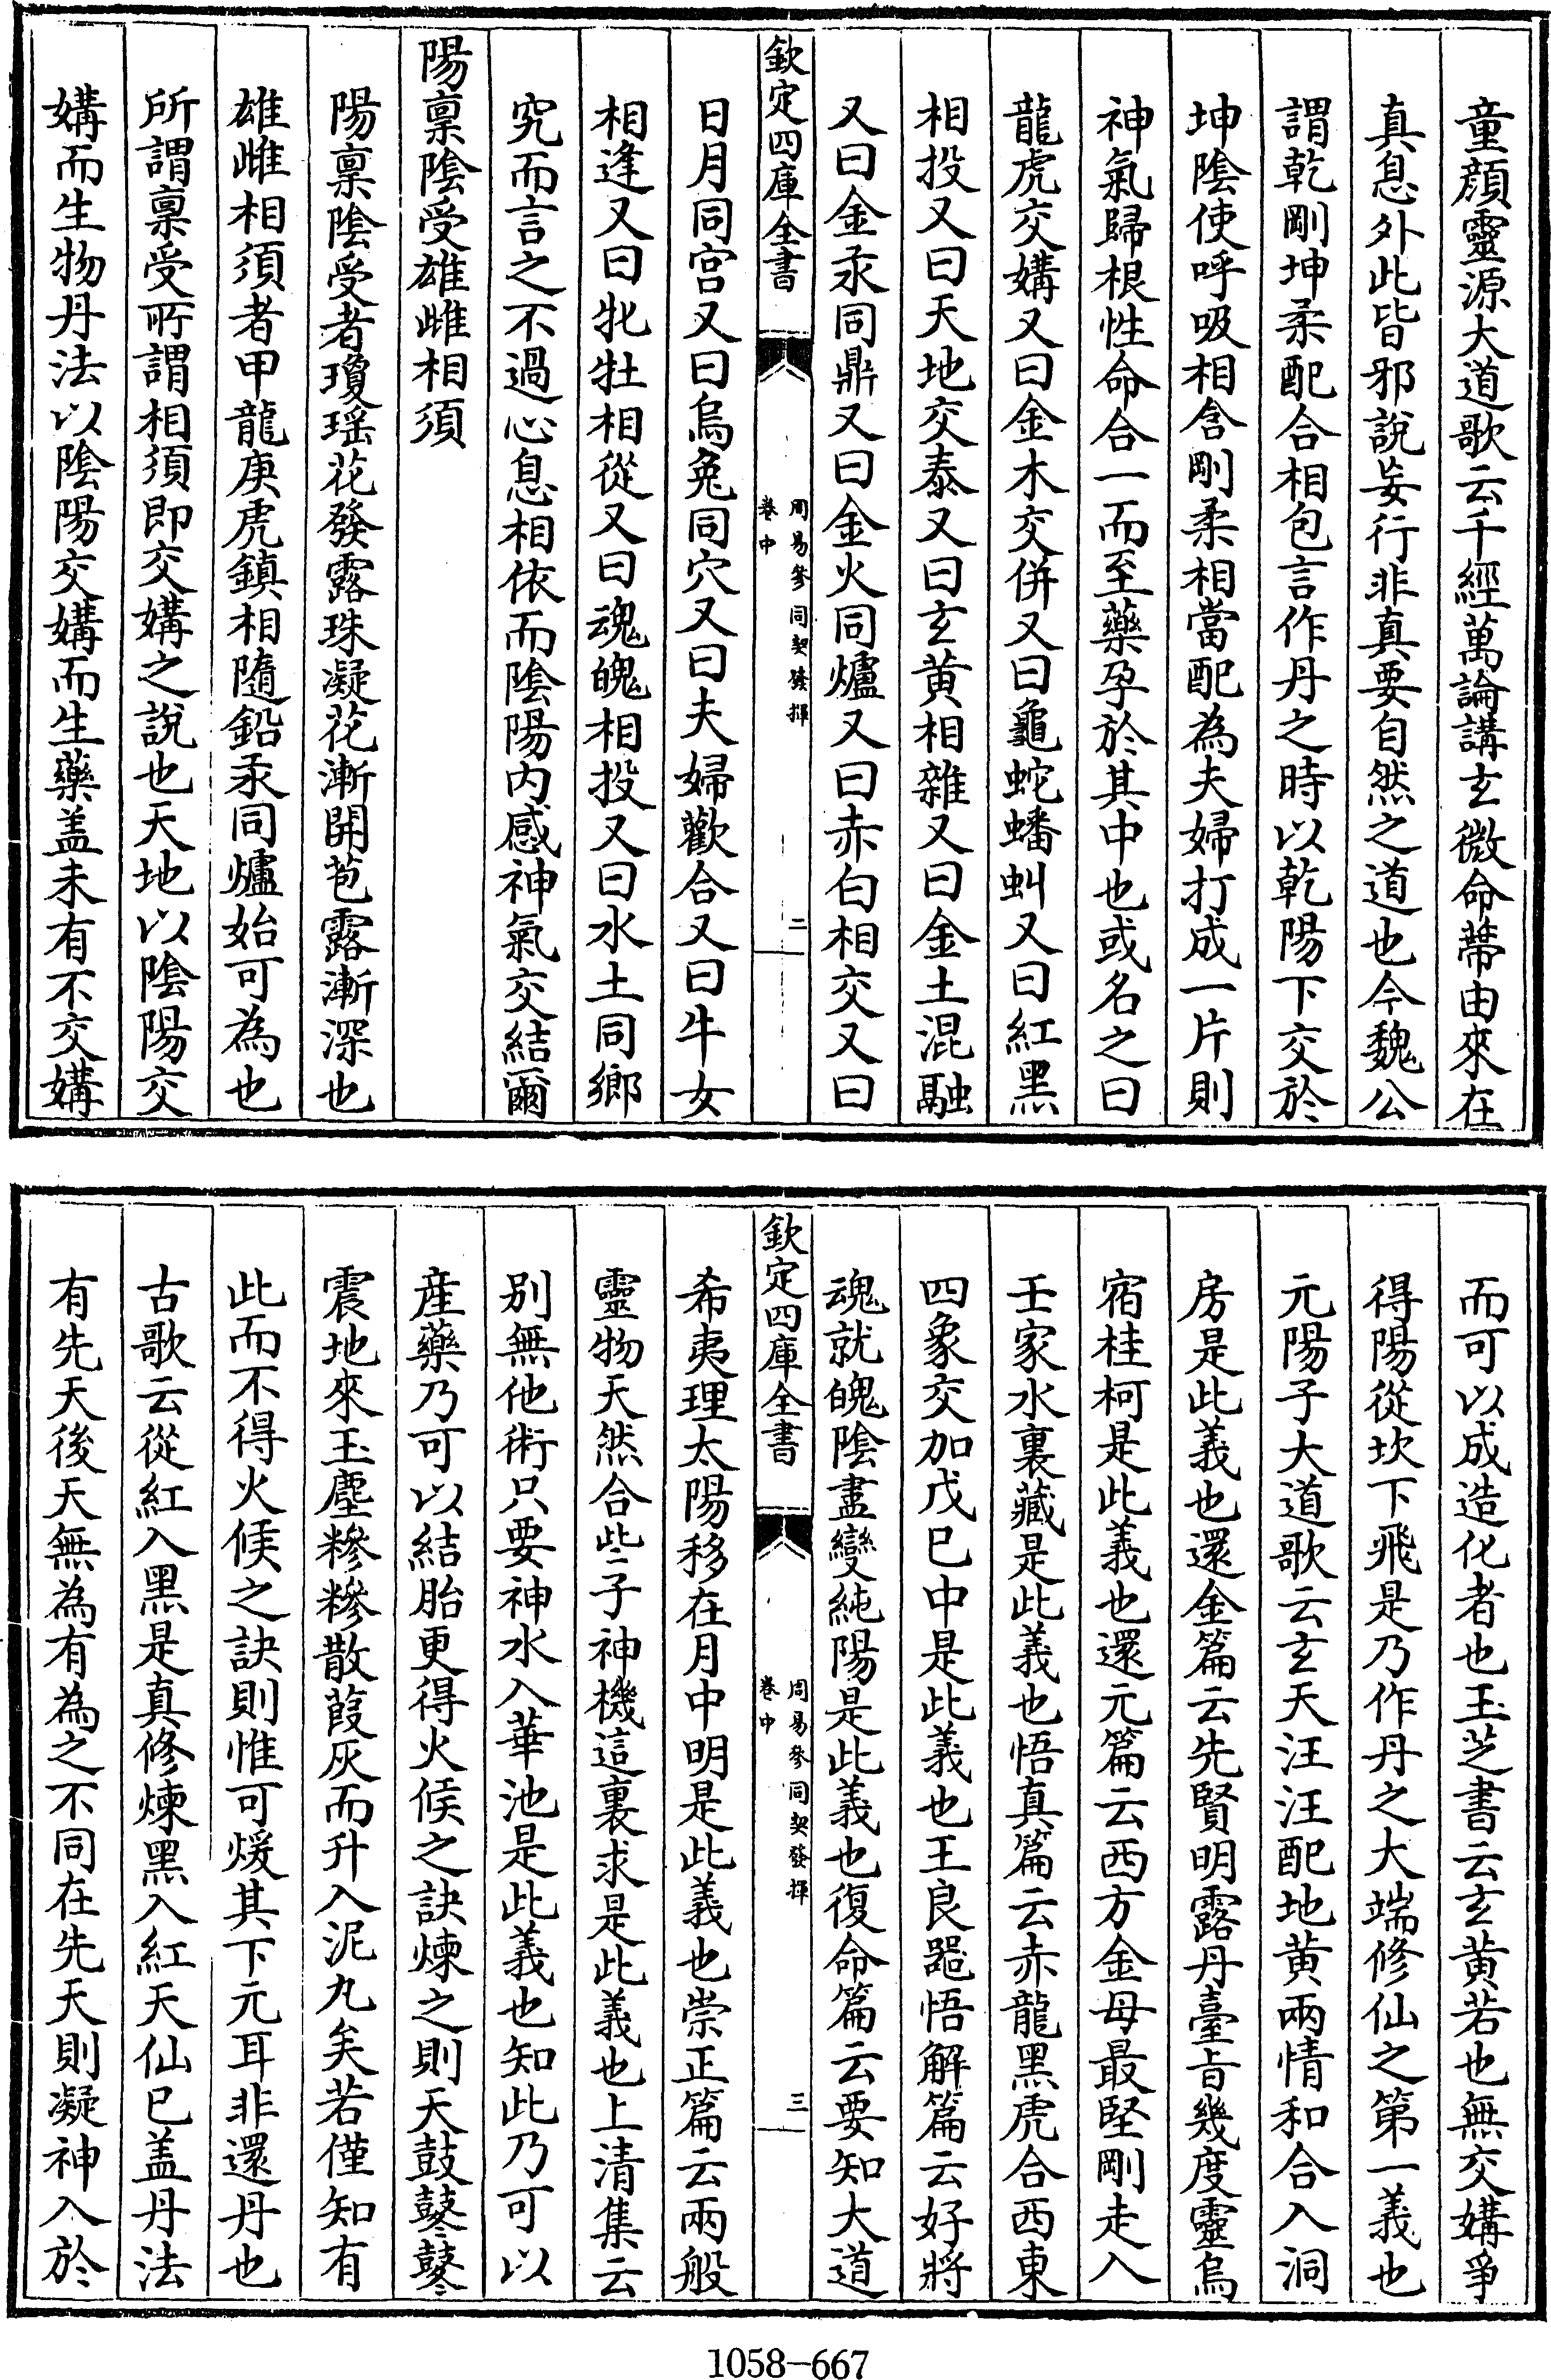 童顔靈源大道歌云千經萬論講玄微命蔕由來在
真息外此皆邪説妄行非真要自然之道也今魏公
謂乾剛坤柔配合相包言作丹之時以乾陽下交於
坤陰使呼吸相含剛柔相當配為夫婦打成一片則
神氣歸根性命合一而至藥孕於其中也或名之曰
龍虎交媾又曰金木交併又曰龜蛇蟠虬又曰紅黑
相投又曰天地交泰又曰玄黄相雜又曰金土混融
又曰金汞同鼎又曰金火同爐又曰赤白相交又曰
欽定四庫全書
周易參同契發揮
卷中
二
日月同宫又曰烏兔同穴又曰夫婦歡合又曰牛女
相逢又曰牝牡相從又曰魂魄相投又曰水土同鄉
究而言之不過心息相依而陰陽内感神氣交結爾
陽稟陰受雄雌相須
陽稟陰受者瓊瑶花發露珠凝花漸開苞露漸深也
雄雌相須者甲龍庚虎鎮相隨鉛汞同爐始可為也
所謂稟受所謂相須即交媾之説也天地以陰陽交
媾而生物丹法以陰陽交媾而生藥盖未有不交媾
而可以成造化者也玉芝書云玄黄若也無交媾爭
得陽從坎下飛是乃作丹之大端修仙之第一義也
元陽子大道歌云玄天汪汪配地黄兩情和合入洞
房是此義也還金篇云先賢明露丹臺旨幾度靈烏
宿桂柯是此義也還元篇云西方金母最堅剛走入
壬家水裏藏是此義也悟真篇云赤龍黑虎合西東
四象交加戊巳中是此義也王良噐悟解篇云好將
魂就魄陰盡變純陽是此義也復命篇云要知大道
欽定四庫全書
周易參同契發揮
卷中
三
希夷理太陽移在月中明是此義也崇正篇云兩般
靈物天然合些子神機這裏求是此義也上清集云
别無他術只要神水入華池是此義也知此乃可以
産藥乃可以結胎更得火候之訣煉之則天鼓鼕鼕
震地來玉塵糝糝散葭灰而升入泥丸矣若僅知有
此而不得火候之訣則惟可煖其下元耳非還丹也
古歌云從紅入黑是真修煉黑入紅天仙巳盖丹法
有先天後天無為有為之不同在先天則凝神入於
1058-667